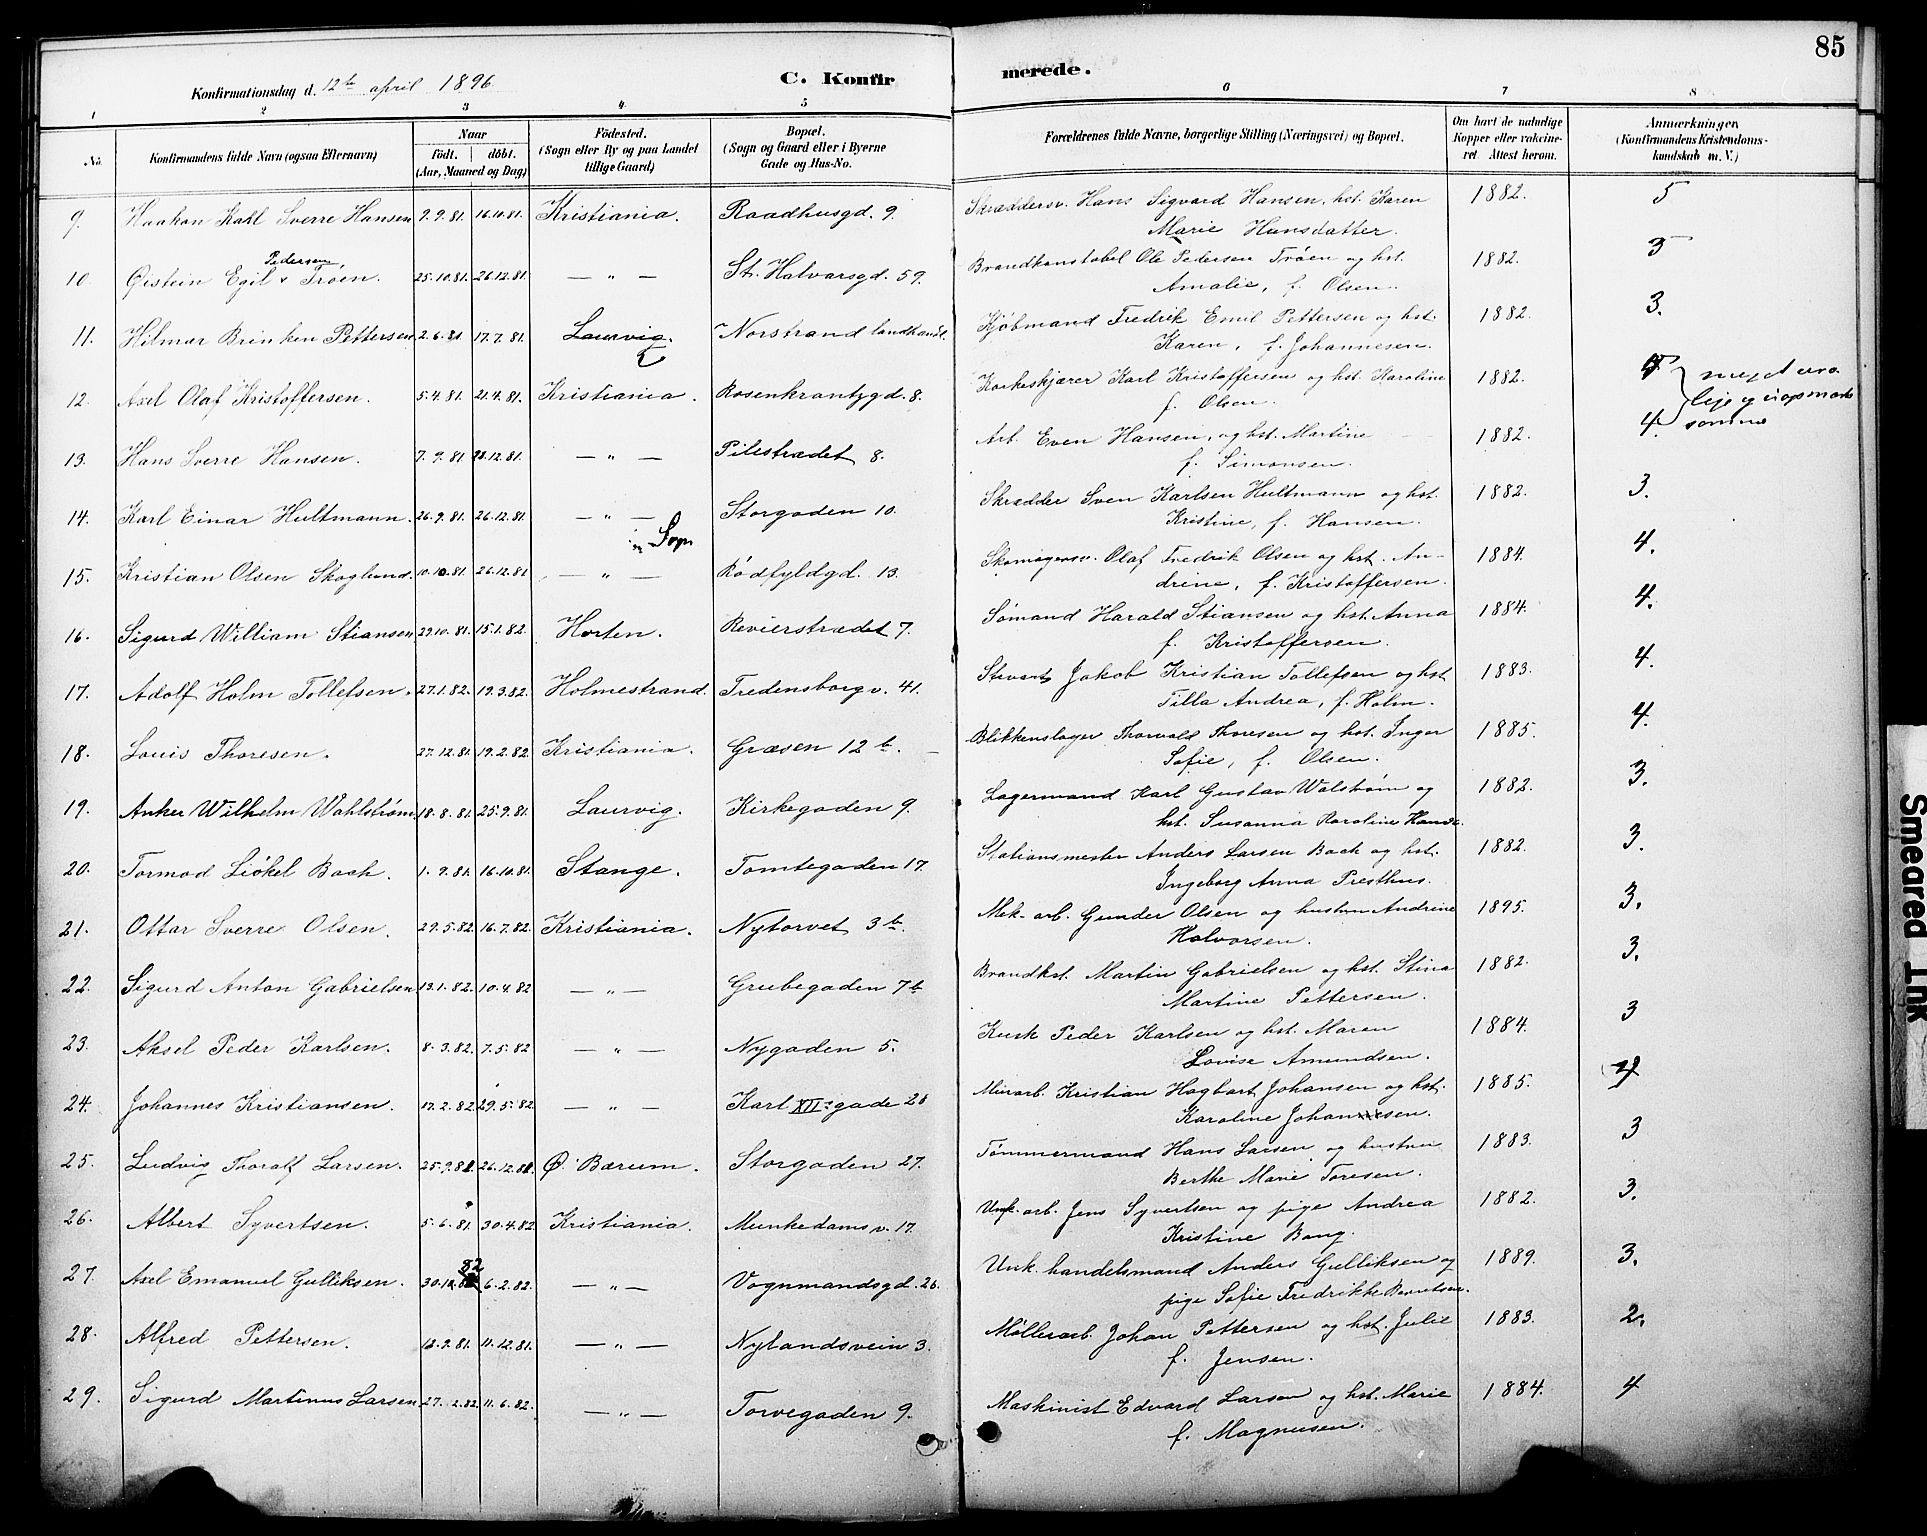 85
Konfirmationsdag d. 12te april 1896
C. Konfir
merede.
1 2 3 4 5 6 7 8
No.
Konfirmandens fulde Navn (ogsaa Efternavn)
Naar
födt. döbt.
(Aar, Maaned og Dag)
Födested.
(Sogn eller By og paa Landet
tillige Gaard)
Bopæl.
(Sogn og Gaard eller i Byerne
Gade og Hus-No.
Forældrenes fulde Navne, borgerlige Stilling (Næringsvei) og Bopæl.
Om havt de naturlige
Kopper eller vakcine-
ret. Attest herom.
Anmærkninger
(Konfirmandens Kristendoms-
kundskab m. V.)
9. Haakon Karl Sverre Hansen 9.9.81. 16.10.81. Kristiania. Raadhusgd. 9. Skræddersv. Hans Sigvard Hansen, hst. Karen 1882. 5
Marie Hansdatter.
Pedersen
10. Øistein Egil v Trøen. 25.10.81. 26.12.81. — " — St. Halvarsgd. 59. Brandkonstabel Ole Pedersen Trøen og hst. 1882. 3
Amalie, f. Olsen.
11. Hilmar Brinken Pettersen 2.6.81. 17.7.81. Laurvig. Norstrand landhandl. Kjøbmand Fredrik Emil Pettersen og hst. 1882. 3.
Karen, f. Johannesen.
12. Axel Olaf Kristoffersen. 5.4.81. 21.4.81. Kristiania. Rosenkrantzgd. 8. Korkeskjærer Karl Kristoffersen og hst. Karoline 1882.
f. Olsen.
13. Hans Sverre Hansen. 7.9.81. 12.81. — " — Pilestrædet 8. Arb. Even Hansen, og hst. Martine 1882. 4.
f. Simonsen.
14. Karl Einar Hultmann. 26.9.81. 26.12.81. — " — Storgaden 10. Skrædder Sven Karlsen Hultmann og hst. 1882. 3.
Kristine, f. Hansen.
Sogn
15. Kristian Olsen Skoglund. 10.10.81. 26.12.81 — " — Rødfyldgd. 13. Skomagersv. Olaf Fredrik Olsen og hst. An- 1884. 4.
drine, f. Kristoffersen.
16. Sigurd William Stiansen 29.10.81. 15.1.82. Horten. Revierstrædet 7. Sømand Harald Stiansen og hst. Anna 1884. 4.
f. Kristoffersen.
17. Adolf Holm Tollefsen. 27.1.82. 19.3.82. Holmestrand. Fredensborgv. 41. Stevart Jakob Kristian Tollefsen og hst 1883. 4.
Tilla Andrea, f. Holm.
18. Louis Thoresen. 27.12.81. 19.2.82. Kristiania. Græsen 12 b. Blikkenslager Thorvald Thoresen og hst. Inger 1885. 4.
Sofie, f. Olsen.
19. Anker Wilhelm Wahlstrøm 18.8.81. 25.9.81. Laurvig. Kirkegaden 9. Lagermand Karl Gustav Walstrøm og 1882. 3.
hst. Susanna Karoline
20. Tormod Liøkel Bach. 1.9.81. 16.10.81. Stange. Tomtegaden 17. Stationsmester Anders Larsen Bach og hst. 1882. 3.
Ingeborg Anna Presthus.
21. Ottar Sverre Olsen. 29.5.82. 16.7.82. Kristiania. Nytorvet 3 b. Mek. arb. Gunder Olsen og hustru Andrine 1895. 3.
Halvorsen.
22. Sigurd Anton Gabrielsen 13.1.82. 10.4.82 — " — Grubegaden 7 b Brandkst. Martin Gabrielsen og hst. Stina 1882. 3.
Martine Pettersen.
23. Aksel Peder Karlsen. 8.3.82. 7.5.82 — " — Nygaden 5. Kusk Peder Karlsen og hst. Maren 1884. 3
Lovise Amundsen.
24. Johannes Kristiansen. 17.2.82. 29.5.82. — " — Karl XIIs gade 20 Minarb. Kristian Hagbart Johansen og hst. 1885. 4
Karoline Johannesen.
25. Ludvig Thoralf Larsen. 25.9.81. 26.12.81. Ø. Bærum. Storgaden 27. Tømmermand Hans Larsen og hustru 1883. 3
Berthe Marie Toresen.
26. Albert Syvertsen. 5.6.81. 30.4.82. Kristiania. Munkedamsv. 17. Unk. arb. Jens Syvertsen og pige Andrea 1882. 3.
Kristine Bang.
82
27. Axel Emanuel Gulliksen. 6.2.82. — " — Vognmandsgd. 26. Unk. handelsmand Anders Gulliksen og 1889. 3.
pige Sofie Fredrikke Berntsen.
28. Alfred Pettersen. 13.9.81. 11.12.81. — " — Nylandsvein 3. Møllerarb. Johan Pettersen og hst. Julie 1883. 2.
f. Jensen.
29. Sigurd Martinus Larsen 27.2.82. 11.6.82. — " — Torvegaden 9. Maskinist Edvard Larsen og hst. Marie 1884. 4
f. Magnusen.
Smeared Ink